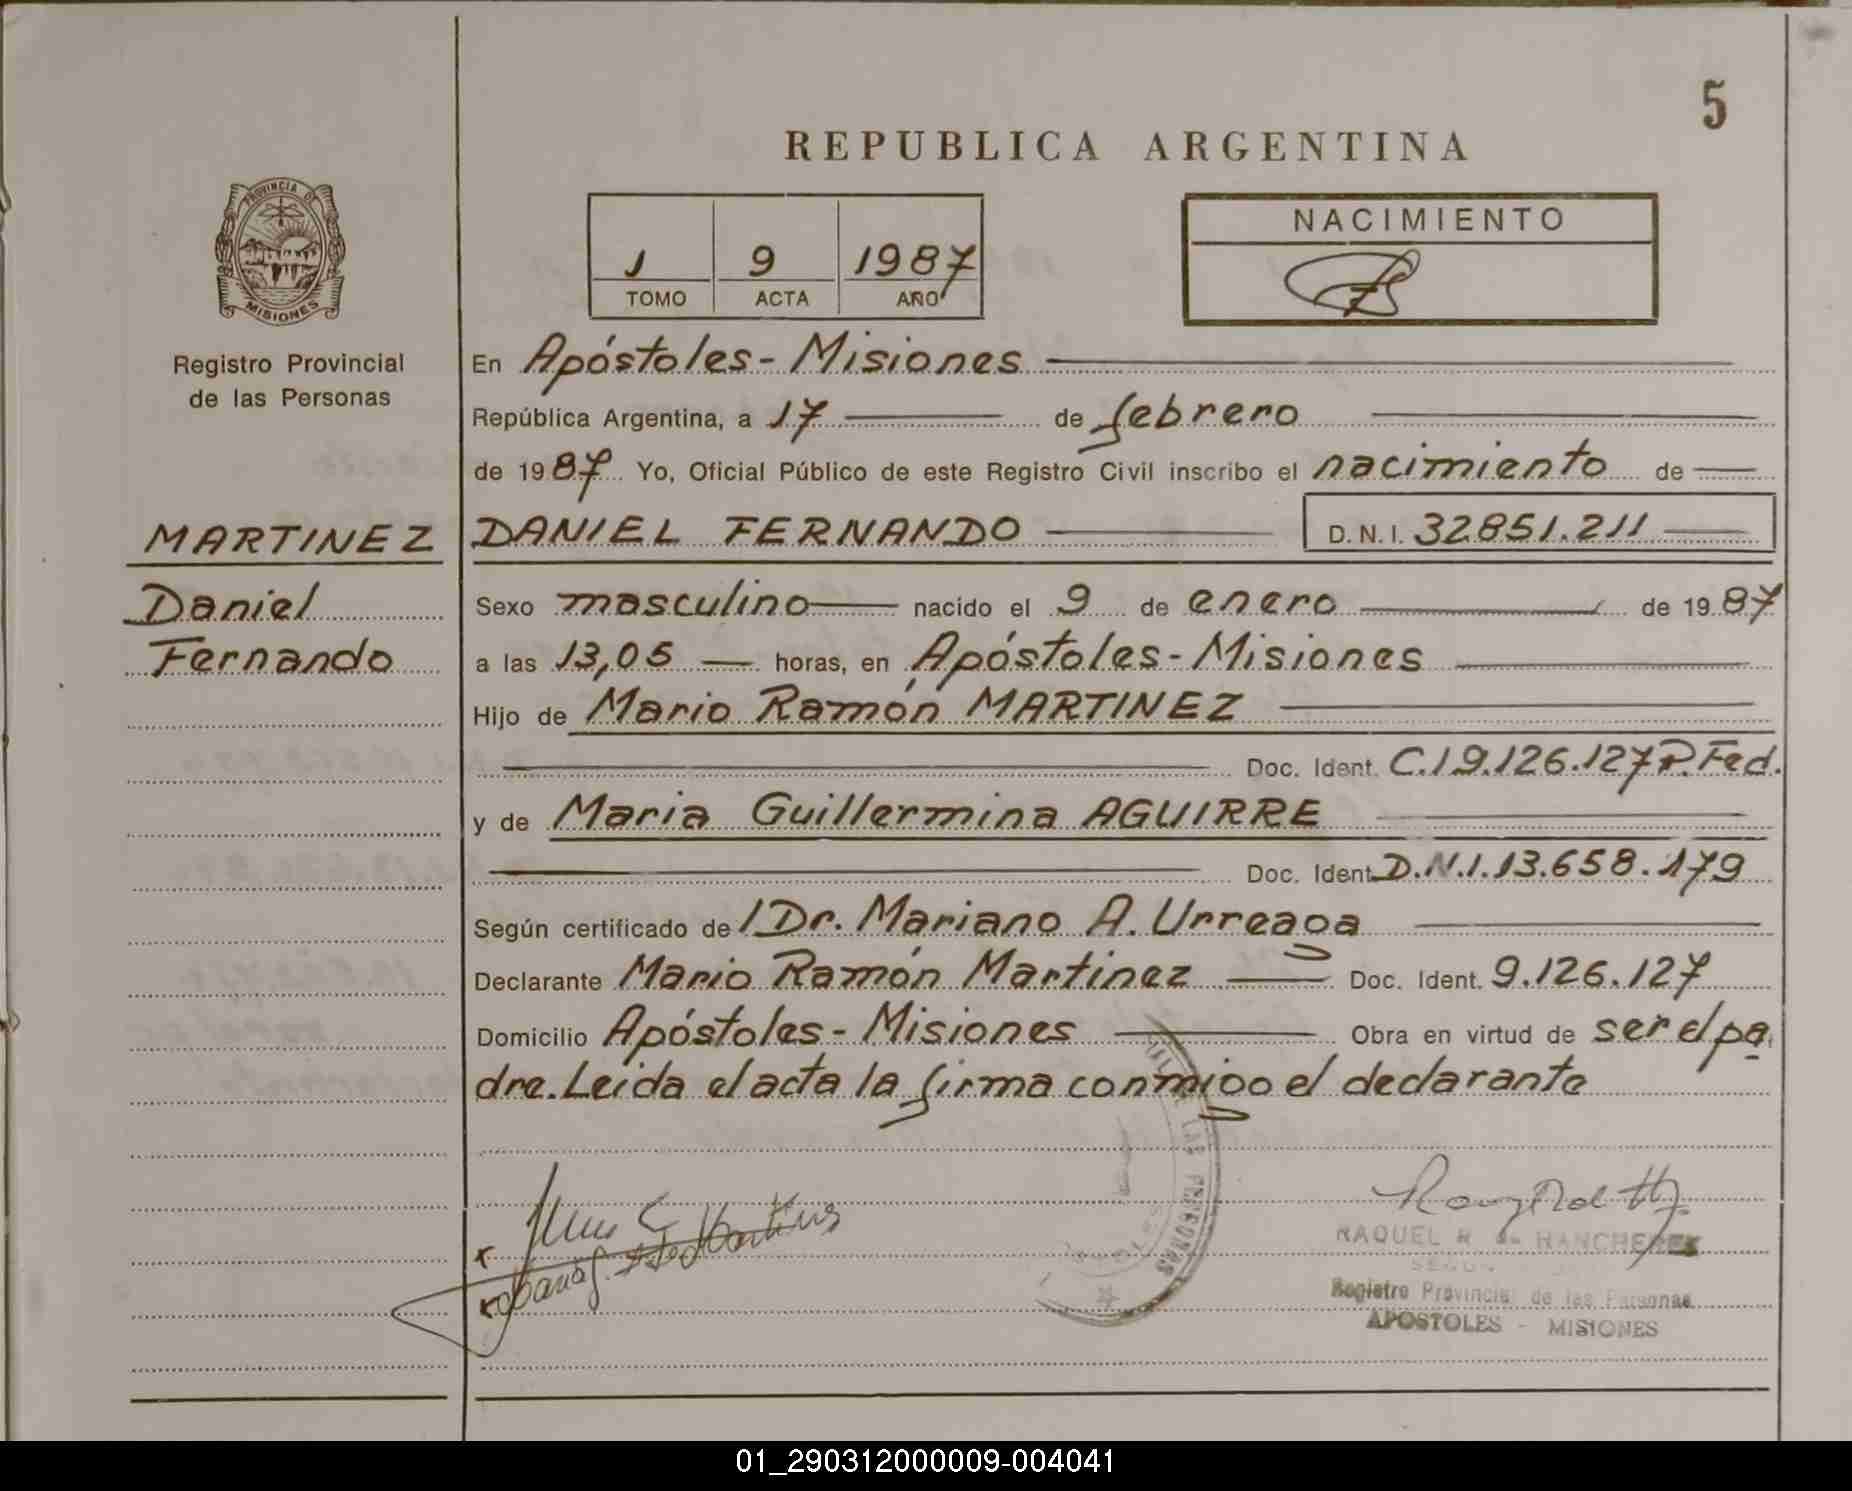 5
REPUBLICA ARGENTINA
PROVINCIA DE
MISIONES
Registro Provincial
de las Personas
1 9 1987
TOMO ACTA AÑO
NACIMIENTO
En Apóstoles - Misiones
República Argentina, a 17 de febrero
de 1987 Yo, Oficial Público de este Registro Civil inscribo el nacimiento de
MARTINEZ DANIEL FERNANDO D. N. I. 32851.211
Daniel
Fernando
Sexo masculino nacido el 9 de enero de 1987
a las 13,05 horas, en Apóstoles - Misiones
Hijo de Mario Ramón MARTINEZ
Doc. Ident. C.I 9.126.127 P. Fed.
y de Maria Guillermina AGUIRRE
Doc. Ident D.N.I. 13.658.179
Según certificado de / Dr. Mariano A. Urreaga
Declarante Mario Ramón Martinez Doc. Ident. 9.126.127
Domicilio Apóstoles - Misiones Obra en virtud de ser el pa
dre. Leida el acta la firma conmigo el declarante
LAS PERSONAS
RAQUEL R. de
Registro Provincial de las Personas
APOSTOLES - MISIONES
01_290312000009-004041